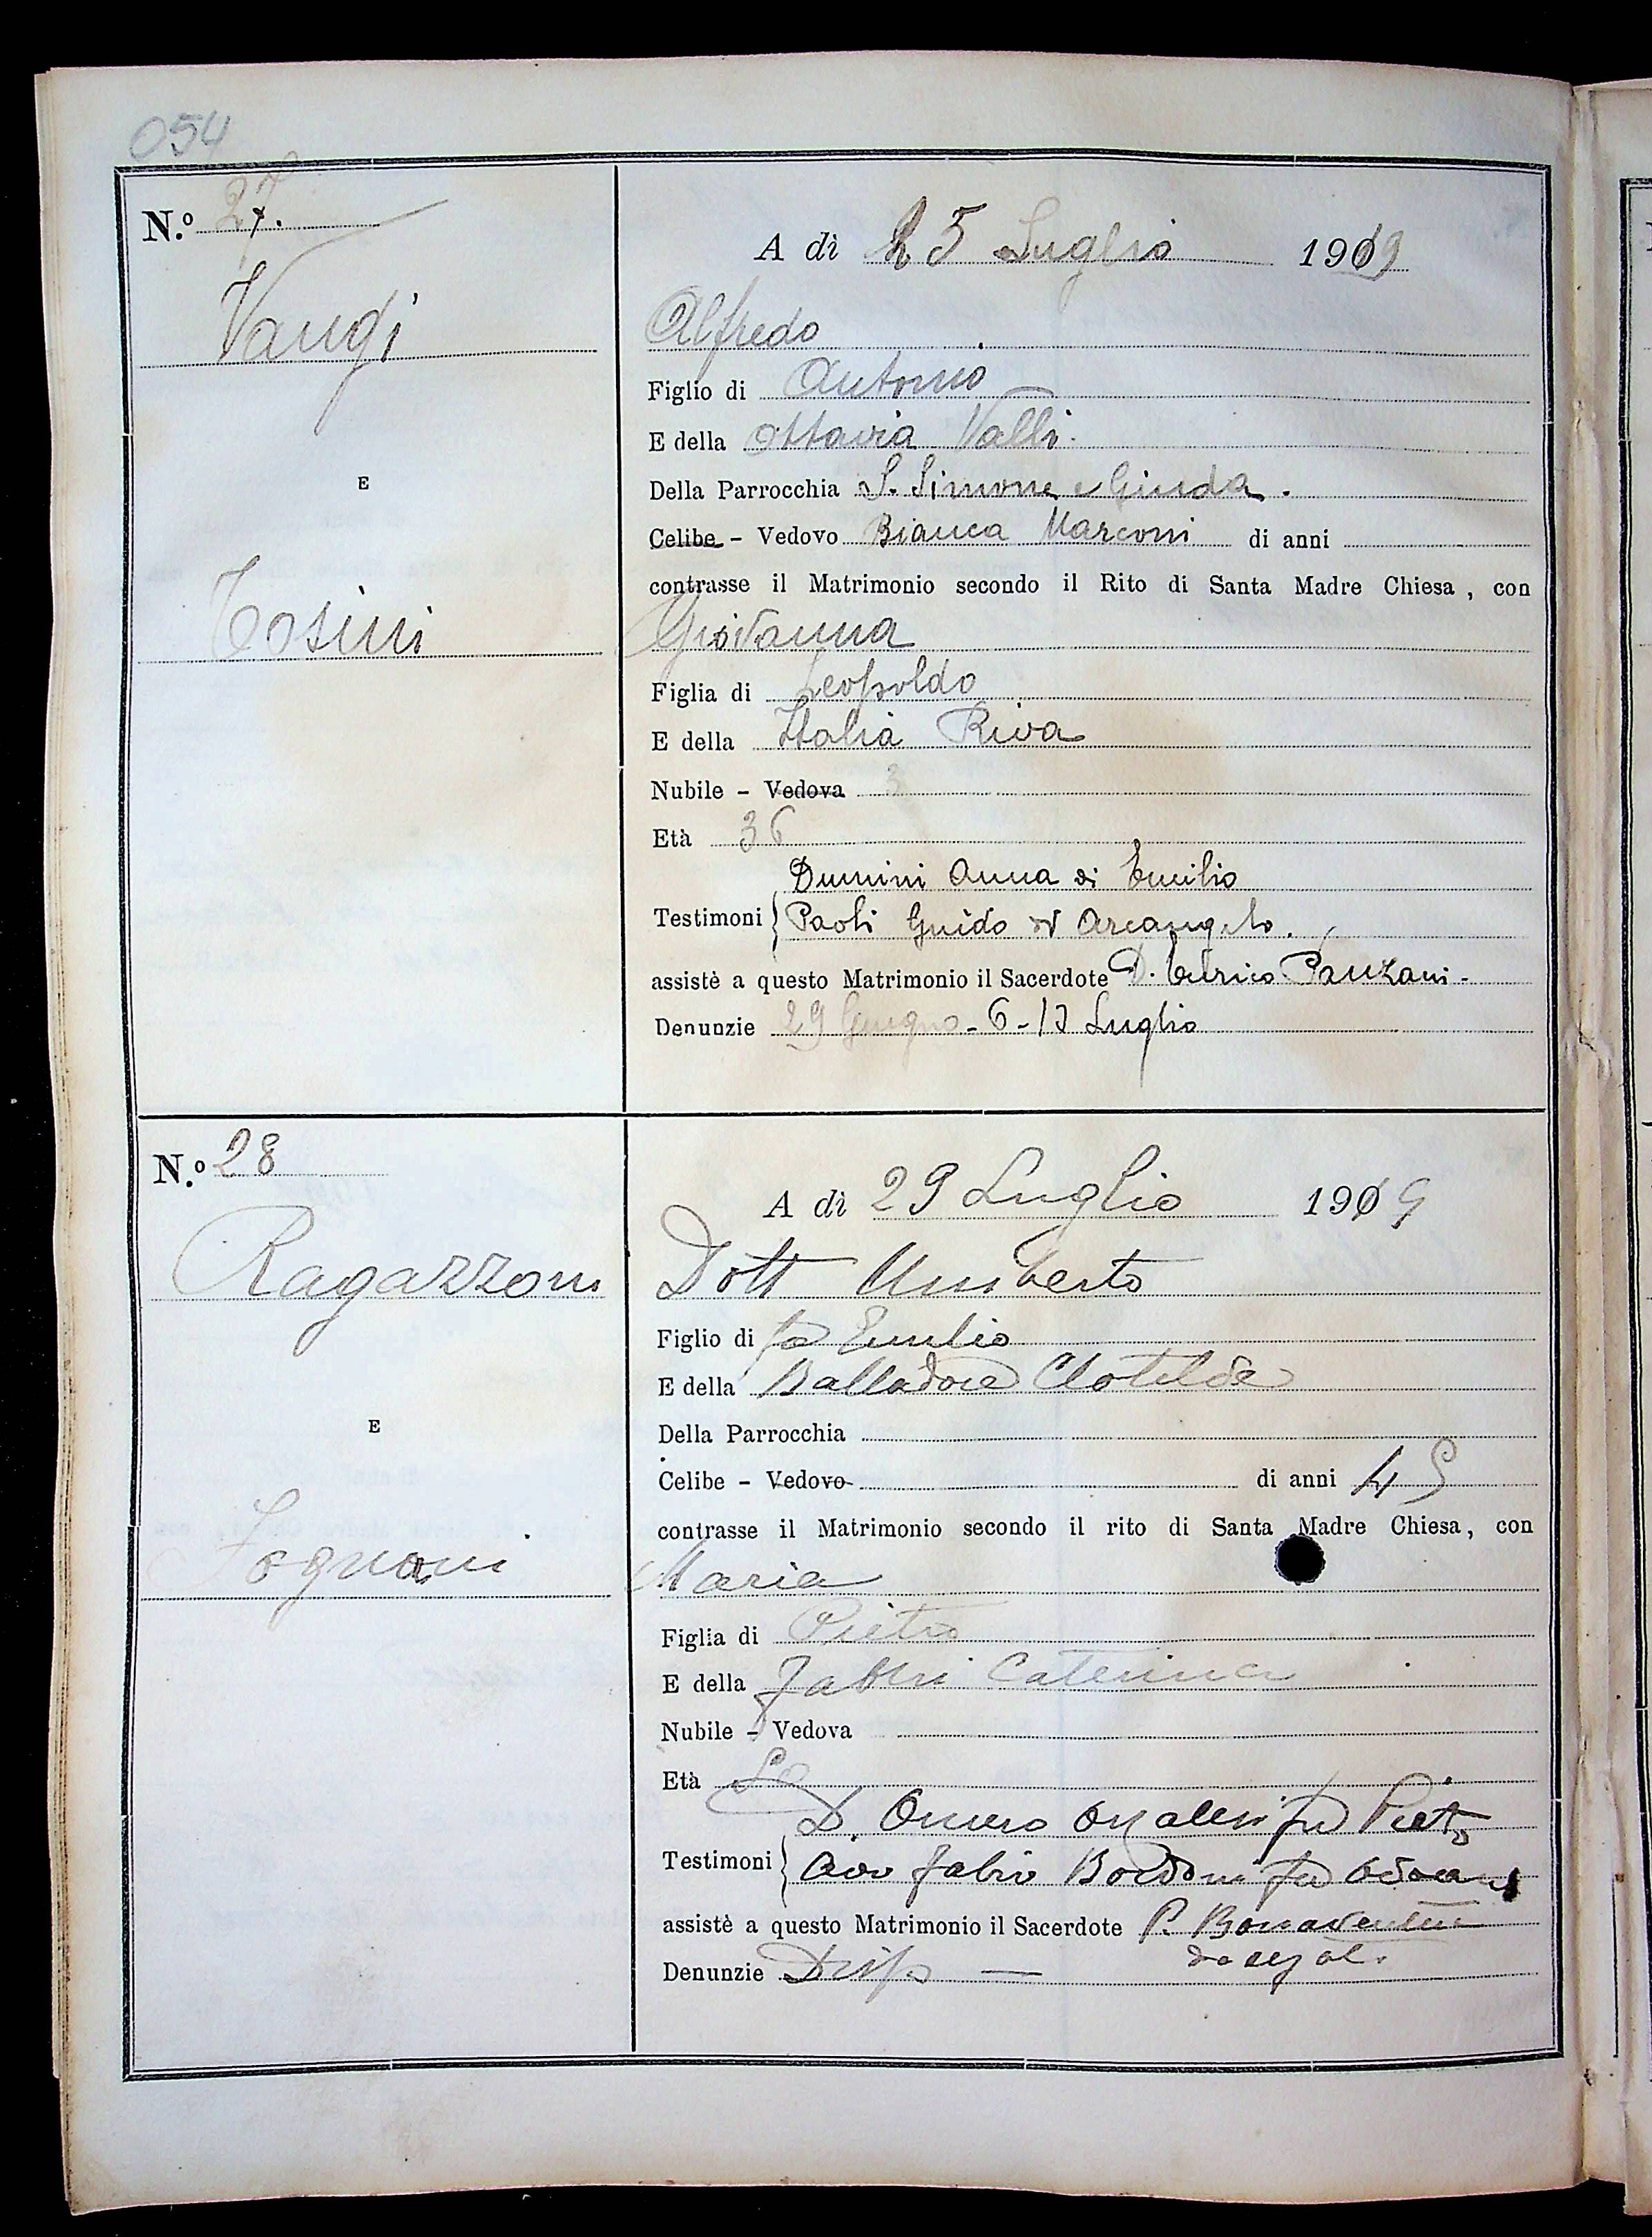 054
N.º 27.
Vangi
E
Tosini
A dì 25 Luglio 1919
Alfredo
Figlio di Antonio
E della Ottavia Valli.
Della Parrocchia S. Simone e Giuda.
Celibe - Vedovo Bianca Marconi di anni
contrasse il Matrimonio secondo il Rito di Santa Madre Chiesa, con
Giovanna
Figlia di Leopoldo
E della Italia Riva
Nubile - Vedova 3
Età 36
Dumini Anna di Emilio
Testimoni Paoli Guido di Arcangelo.
assistè a questo Matrimonio il Sacerdote D. Enrico Panzani-
Denunzie 29 Giugno - 6 - 13 Luglio
N.º 28
Ragazzoni
E
Fognani
A dì 29 Luglio 1919
Dott Umberto
Figlio di fu Emilio
E della Balladore Clotilde
Della Parrocchia
Celibe - Vedovo di anni 45
contrasse il Matrimonio secondo il rito di Santa Madre Chiesa, con
Maria
Figlia di Pietro
E della Fabbri Caterina
Nubile - Vedova
Età
D. Omero fu Pietro
Testimoni Avv Fabio Bordoni fu
assistè a questo Matrimonio il Sacerdote P. Bonaventura
da
Denunzie Disp —